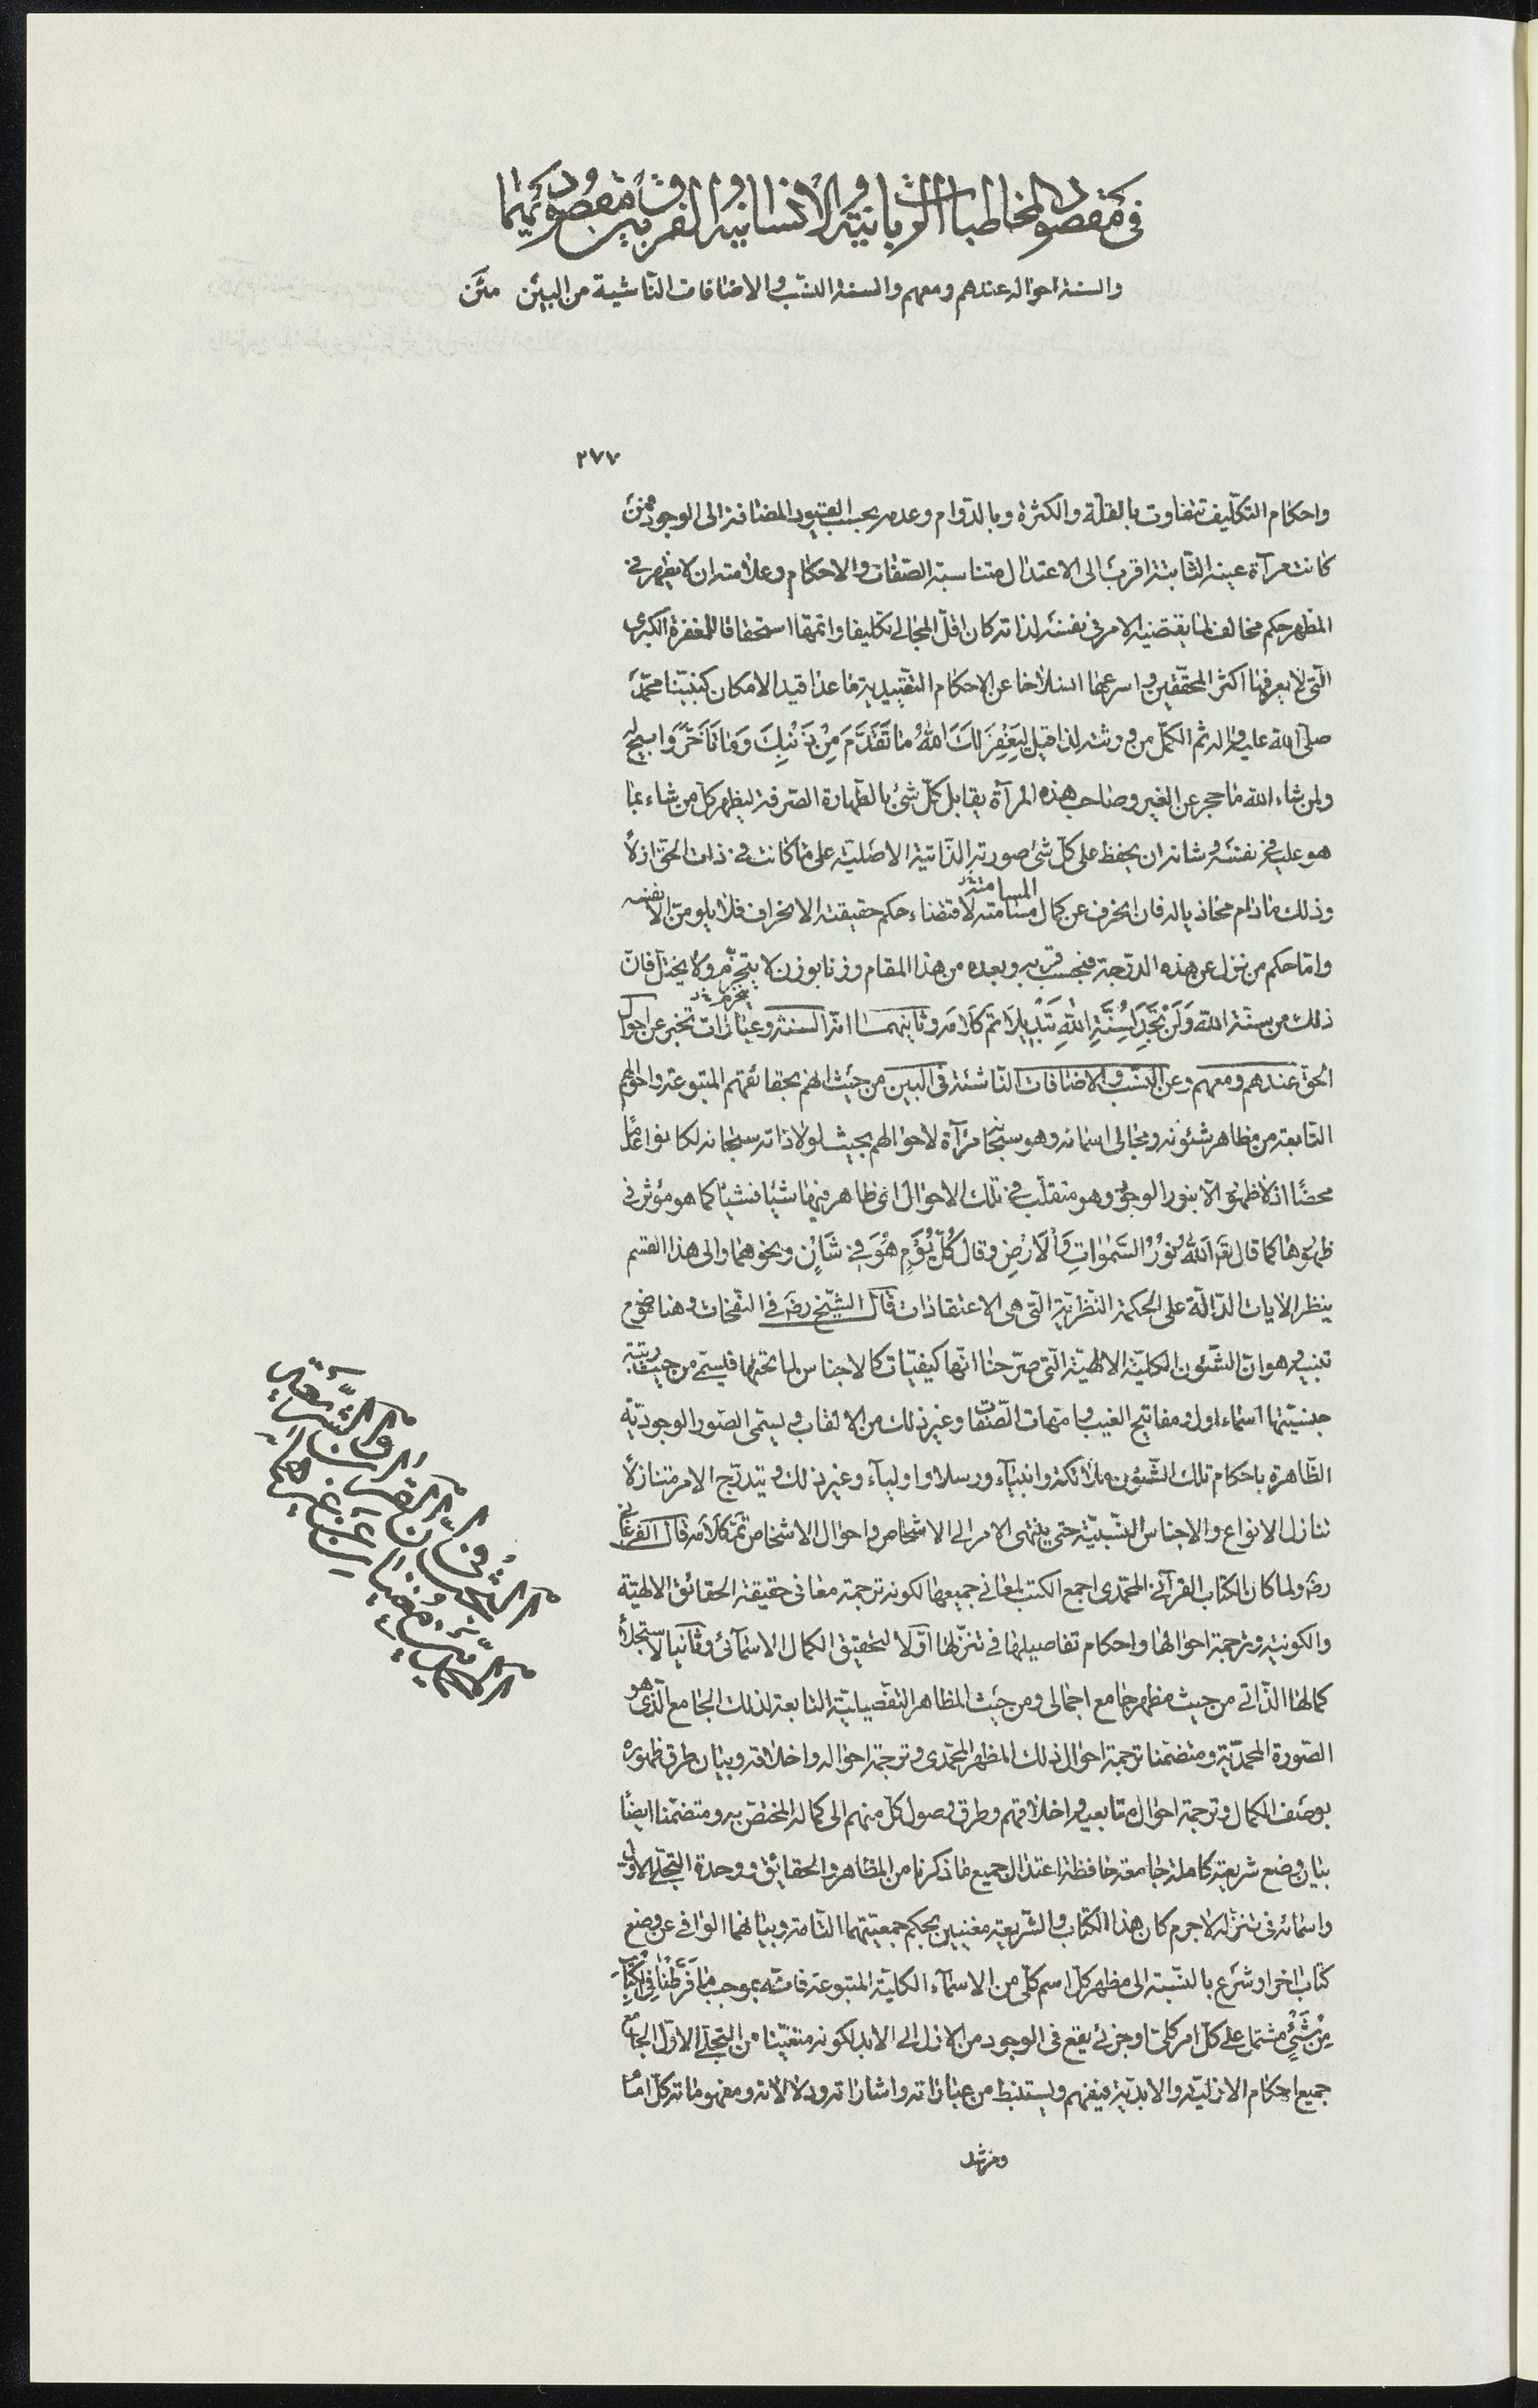 في مقصود المخاطبات الربانية والانسانية والفرق بين مقصوديهما
والسنة احواله عندهم ومعهم والسنة النسب والاضافات الناشية من البين متن
٢٧٧
واحكام التكليف تتفاوت بالقلّة والكثرة وبالدّوام وعدمه بحسب القيود المضافة الى الوجود فمن
كانت مرآة عينه الثّابتة اقرب الى الاعتدال متناسبة الصّفات والاحكام وعلامته ان لا يظهر في
المظهر حكم مخالف لما يقتضيه الامر في نفسه لذاته كان اقلّ المجالى تكليفا واتمّها استحقاقا للمغفرة الكبرى
الّتى لا يعرفها اكثر المحقّقين واسرعها انسلاخا عن الاحكام التقييدية ما عدا قيد الامكان كنبيّنا محمّد
صلى الله عليه واله ثم الكمّل من ورثته لذا قيل لِيَغْفِرَ لَكَ اللّهُ مَا تَقَدَّمَ مِنْ ذَنْبِكَ وَمَا تَأَخَّرَ وابيح له
ولمن شاء الله ما حجر عن الغير وصاحب هذه المرآة يقابل كلّ شئ بالطّهارة الصّرفة ليظهر كل من شاء بما
هو عليه في نفسه وشانه ان يحفظ على كلّ شئ صورته الذّاتية الاصليّة على ما كانت في ذات الحقّ ازلاً
وذلك ما دام محاذيا له فان انحرف عن كمال مسامتته لاقتضاء حكم حقيقته الانحراف فلا يلومنّ الا نفسه
المسامتة
وامّا حكم من نزل عن هذه الدّرجة فبحسب قربه وبعده من هذا المقام وزنا بوزن لا يتجزّم ولا يختلّ فانّ
ينخرم
ذلك من سنّة الله وَلَنْ تَجِدَ لِسُنَّةِ اللّهِ تَبْدِيلاً تم كلامه وثانيهما انّه السنة وعبارات تخبر عن احوال
الحق عندهم ومعهم وعن النسب والاضافات النّاشئة في البين من حيث انهم بحقائقهم المتبوعة واحوالهم
التّابعة من مظاهر شئونه ومجالى اسمائه وهو سبحانه مرآة لاحوالهم بحيث لولا ذاته سبحانه لكانوا عدما
محضًا اذ لا ظهور الّا بنور الوجود وهو متقلّب في تلك الاحوال اى ظاهر فيها شيئا فشيئا كما هو مؤثر في
ظهورها كما قال تعه اَللّهُ نُورُ السَّمٰوَاتِ وَالْاَرْضِ وقال كُلَّ يَوْمٍ هُوَ فِي شَأْنٍ ونحوهما والى هذا القسم
ينظر الايات الدّالّة على الحكمة النّظريّة الّتى هى الاعتقادات قال الشّيخ رضه في النّفحات وهنا موضع
تنبيه وهو انّ الشّئون الكليّة الالهيّة الّتى صرّحنا انّها كيفيّات كالاجناس لما تحتها فيسمّى من حيث رتبة
جنسيّتها اسماء اول ومفاتيح الغيب وامهات الصّفات وغير ذلك من الالقاب ويسمّى الصّور الوجوديّة
الظّاهرة باحكام تلك الشّئون ملائكة وانبيآء ورسلا واوليآء وغير ذلك ويتدرّج الامر متنازلاً
تنازل الانواع والاجناس النّسبيّة حتى ينتهى الامر الى الاشخاص واحوال الاشخاص تمّ كلامه قال الفرغانى
رضه ولما كان الكتاب القرآنى المحمّدى اجمع الكتب لمعانى جميعها لكونه ترجمة معانى حقيقة الحقائق الالهيّة
والكونيّة وترجمة احوالها واحكام تفاصيلها في تنزّلها اوّلا لتحقيق الكمال الاسمآئى وثانيا لاستجلاء
كمالها الذّاتى من حيث مظهر جامع اجمالى ومن حيث المظاهر التفصيليّة التابعة لذلك الجامع الّذى هو
الصّورة المحمديّة ومتضمّنا ترجمة احوال ذلك المظهر المحمّدى وترجمة احواله واخلاقه وبيان طرق ظهوره
بوصف الكمال وترجمة احوال متابعيه واخلاقهم وطرق وصول كلّ منهم الى كماله المختصّ به ومتضمّنا ايضًا
بيان وضع شريعة كاملة جامعة حافظة اعتدال جميع ما ذكرنا من المظاهر والحقايق ووحدة التجلّى الاوّل
واسمائه في تنزّله لا جرم كان هذا الكتاب والشّريعة مغنيين بحكم جمعيّتهما التّامة وبيانهما الوافى عن وضع
كتاب اخر او شرع بالنّسبة الى مظهر كلّ اسم كلّى من الاسمآء الكليّة المتبوعة فانّه بموجب مَا فَرَّطْنَا فِي الْكِتَابِ
مِنْ شَيْءٍ مشتمل على كلّ امر كلىّ او جزئى يقع في الوجود من الازل الى الابد لكونه متعيّنا من التجلّى الاوّل الجامع
جميع احكام الازليّة والابديّة فيفهم ويستنبط من عباراته واشاراته ودلالاته ومفهوماته كلّ امام
ومرشد